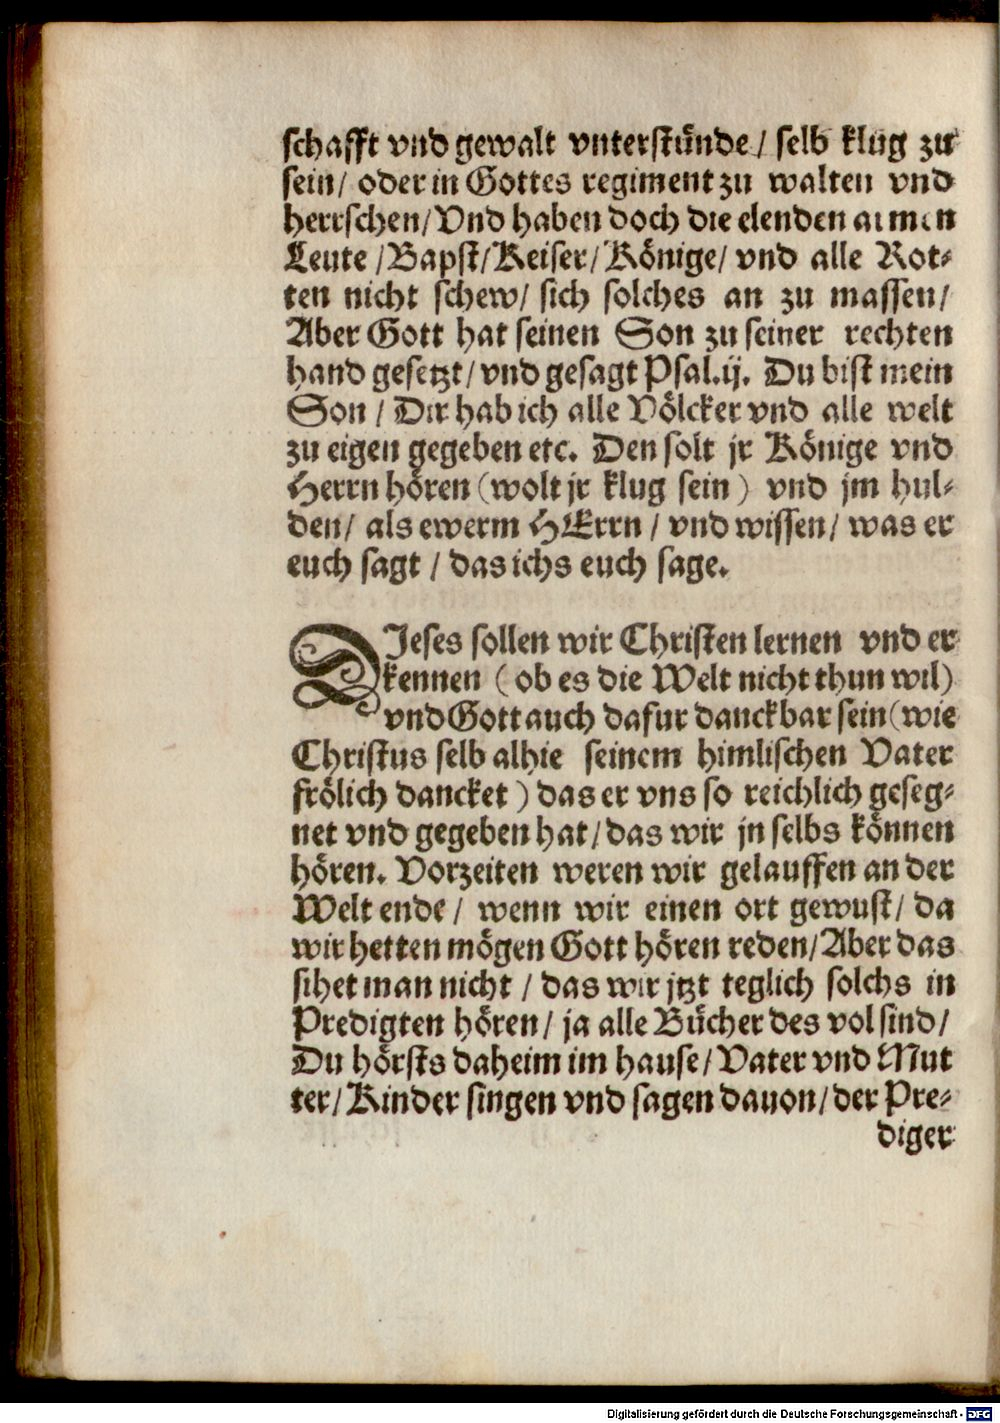 schafft vnd gewalt vnterstünde / selb klug zu
sein / oder in Gottes regiment zu walten vnd
herrschen / Vnd haben doch die elenden armen
Leute / Bapst / Keiser / Könige / vnd alle Rot⸗
ten nicht schew / sich solches an zu massen /
Aber Gott hat seinen Son zu seiner rechten
hand gesetzt / vnd gesagt Psal. ij. Du bist mein
Son / Dir hab ich alle Völcker vnd alle welt
zu eigen gegeben etc. Den solt jr Könige vnd
Herrn hören (wolt jr klug sein) vnd jm hul⸗
den / als ewerm HErrn / vnd wissen / was er
euch sagt / das ichs euch sage.
DIeses sollen wir Christen lernen vnd er
kennen (ob es die Welt nicht thun wil)
vnd Gott auch dafur danckbar sein (wie
Christus selb alhie seinem himlischen Vater
frölich dancket) das er vns so reichlich geseg⸗
net vnd gegeben hat / das wir jn selbs können
hören. Vorzeiten weren wir gelauffen an der
Welt ende / wenn wir einen ort gewust / da
wir hetten mögen Gott hören reden / Aber das
sihet man nicht / das wir jtzt teglich solchs in
Predigten hören / ja alle Bücher des vol sind /
Du hörsts daheim im hause / Vater vnd Mut
ter / Kinder singen vnd sagen dauon / der Pre⸗
diger
Digitalisierung gefördert durch die Deutsche Forschungsgemeinschaft - DFG